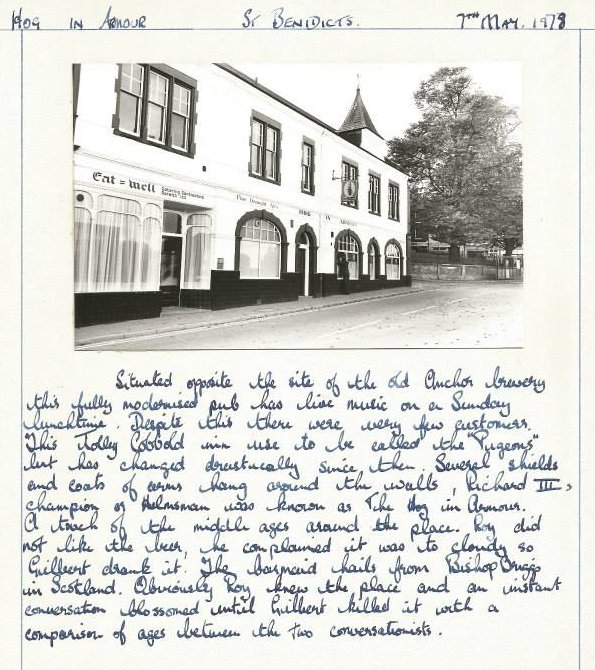 HOG IN ARMOUR ST BENIDICTS. 7TH MAY. 1978
Eat = well
HOG IN ARMOUR
Situated opposite the site of the old Anchor brewery
this fully modernised pub has live music on a Sunday
lunchtime. Despite this there were very few customers.
This Tolley Cobbold inn use to be called the "Pigeons"
but has changed drastically since then. Several shields
and coats of arms hang around the walls, Richard III,s
champion or Helmsman was known as The Hog in Armour.
A touch of the middle ages around the place. Roy did
not like the beer, he complained it was to cloudy so
Gilbert drank it. The barmaid hails from Bishop Briggs
in Scotland. Obviously Roy knew the place and an instant
conversation blossomed until Gilbert killed it with a
comparison of ages between the two conversationists.